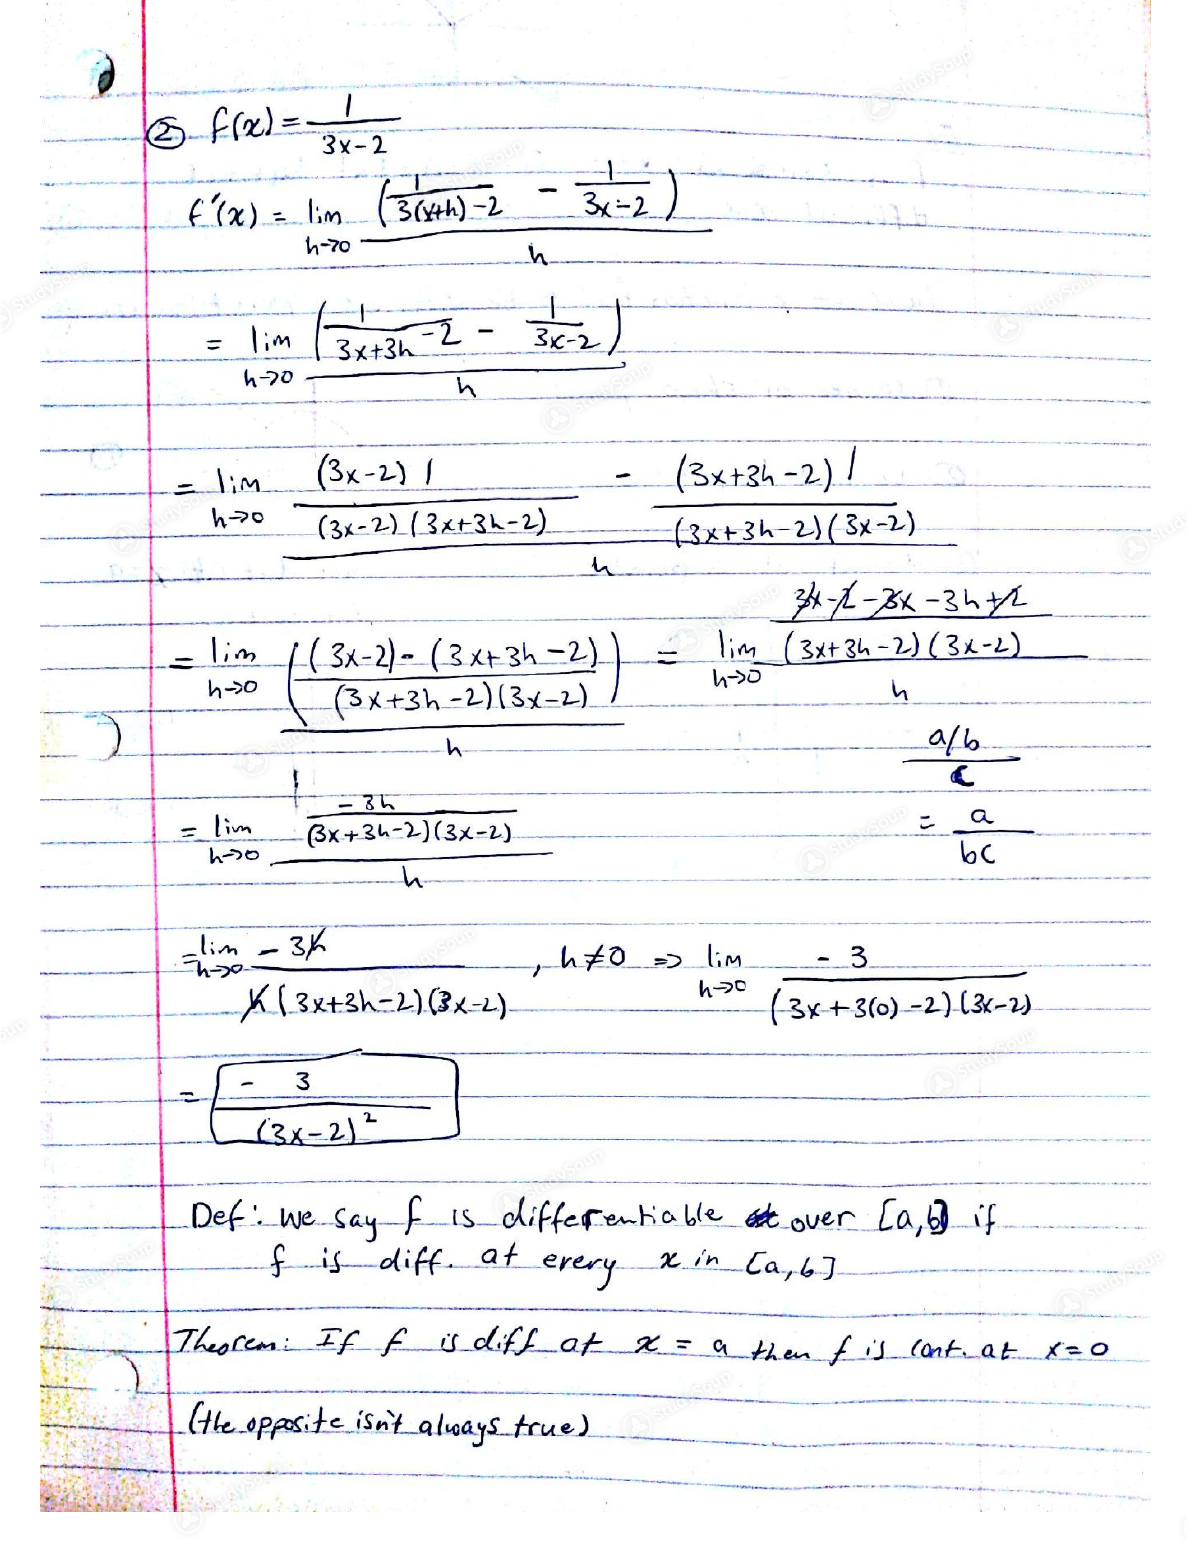 ② f(x) = 1/(3x-2)
f'(x) = lim h→0 (1/(3(x+h)-2) - 1/(3x-2))/h
= lim h→0 (1/(3x+3h-2) - 1/(3x-2))/h
= lim h→0 ((3x-2)1/((3x-2)(3x+3h-2)) - (3x+3h-2)1/((3x+3h-2)(3x-2)))/h
= lim h→0 (((3x-2)-(3x+3h-2))/((3x+3h-2)(3x-2)))/h = lim h→0 ((3x-2-3x-3h+2)/((3x+3h-2)(3x-2)))/h
(a/b)/c
= lim h→0 (-3h/((3x+3h-2)(3x-2)))/h
= a/bc
= lim h→0 -3h/(h(3x+3h-2)(3x-2)), h≠0 => lim h→0 -3/((3x+3(0)-2)(3x-2))
= -3/(3x-2)²
Def: We say f is differentiable over [a,b] if
f is diff. at every x in [a,b]
Theorem: If f is diff at x = a then f is cont. at x=0
(the opposite isn't always true)
StudySoup